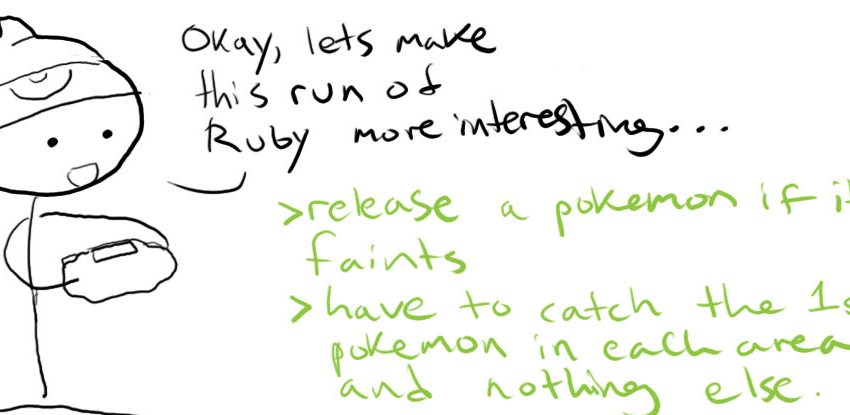 Okay, lets make
this run of
Ruby more interesting...
>release a pokemon if
faints
>have to catch the
pokemon in each area
and nothing else.